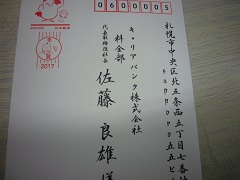 0600005
札幌市中央区北五条西五丁目七番地
sapporo55ビ
キャリアバンク株式会社
料金部
代表取締役社長
佐藤良雄様
2017